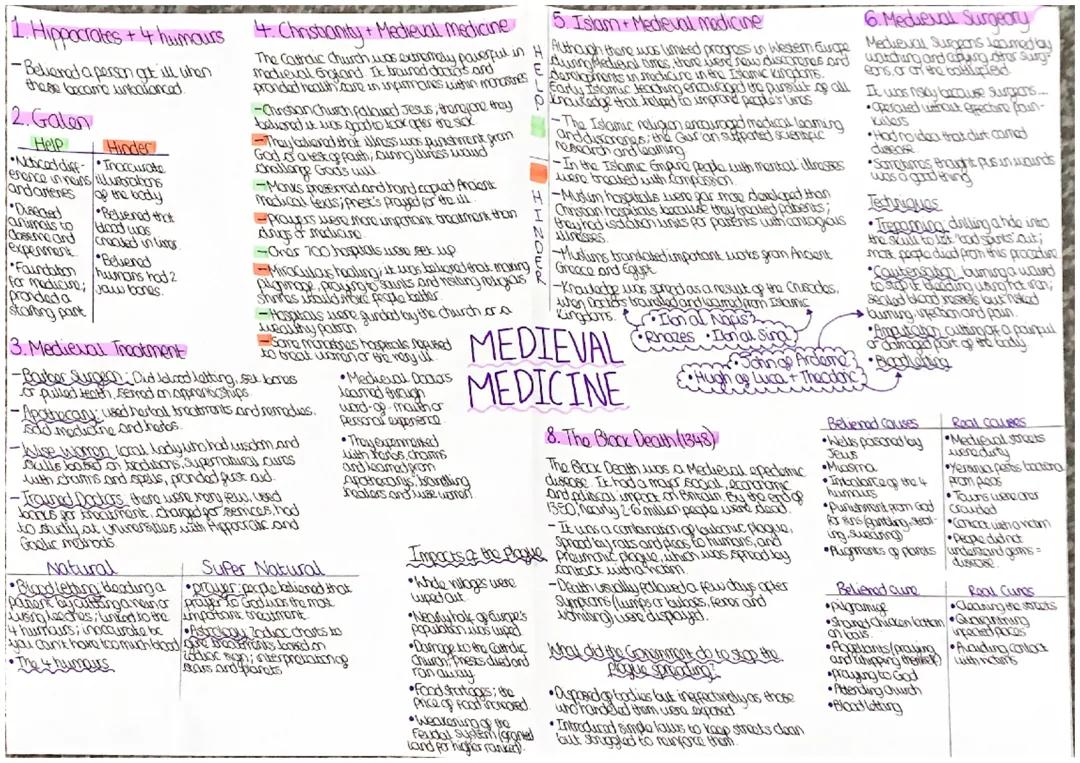 1. Hippocrates + 4 humours
- Believed a person got ill when
these became unbalanced.
2. Galen
Help
• Noticed diff-
erence in veins
and arteries
• Dissected
animals to
observe and
experiment.
• Foundation
for medicine;
provided a
starting point
Hinder
• Inaccurate
illustrations
of the body
• Believed that
blood was
created in liver
• Believed
humans had 2
jaw bones.
3. Medieval Treatment
- Barber Surgeon: Did blood letting, set bones
or pulled teeth, served an apprenticeships.
- Apothecary: used herbal treatments and remedies,
sold medicine and herbs.
- Wise Woman: local lady who had wisdom and
skills based on traditions, supernatural cures
with charms and spells, provided first aid.
- Trained Doctors: there were very few, used
books for treatment, charged for services, had
to study at universities with Hippocratic and
Galenic methods.
• Medieval Doctors
learned through
word-of-mouth or
personal experience.
• They experimented
with herbs, charms
and learned from
apothecarys, travelling
healers and wise women.
Natural
• Blood letting: bleeding a
patient by cutting a vein or
using leeches; linked to the
4 humours; inaccurate bc
you can't have too much blood
• The 4 humours
Super Natural
• prayer: people believed that
prayer to God was the most
important treatment.
• Astrology: Zodiac charts to
give treatments based on
zodiac sign; interpretation of
stars and planets
4. Christianity + Medieval Medicine
The Catholic Church was extremely powerful in
medieval England. It trained doctors and
provided health care in infirmaries within monasteries
- Christian Church followed Jesus; therefore they
believed it was good to look after the sick
- They believed that illness was punishment from
God or a test of faith; curing illness would
challenge God's will.
- Monks preserved and hand copied Ancient
medical texts; Priests prayed for the ill.
- prayers were more important treatment than
drugs or medicine.
- Over 700 hospitals were set up
- Miraculous healing; it was believed that making
pilgrimage, praying to saints and visiting religious
shrines would make people better.
- Hospitals were funded by the church or a
wealthy patron
- Some monasteries hospitals refused
to treat women or the very ill.
HELP
HINDER
MEDIEVAL
MEDICINE
5. Islam + Medieval medicine
Although there was limited progress in Western Europe
during Medieval times, there were new discoveries and
developments in medicine in the Islamic kingdoms.
Early Islamic teaching encouraged the pursuit of all
knowledge that helped to improve people's lives
- The Islamic religion encouraged medical learning
and discoveries; the Qur'an supported scientific
research and learning
- In the Islamic Empire people with mental illnesses
were treated with compassion.
- Muslim hospitals were far more developed than
Christian hospitals because they treated patients;
they had isolation units for patients with contagious
illnesses.
- Muslims translated important works from Ancient
Greece and Egypt
- Knowledge was spread as a result of the Crusades,
when Doctors travelled and learned from Islamic
Kingdoms.
• Ibn al Nafis
• Rhazes • Ibn al Sina
• John of Arderne
• Hugh of Luca + Theodoric
6. Medieval Surgery
Medieval Surgeons learned by
watching and copying other surg-
eons, or on the battlefield
It was risky because surgeons...
• operated without effective pain-
killers
• Had no idea that dirt carried
disease.
• Sometimes thought pus in wounds
was a good thing
Techniques
• Trepanning: drilling a hole into
the skull to let 'bad spirits out';
most people died from this procedure
• Cauterisation: burning a wound
to stop it bleeding using hot iron;
sealed blood vessels but risked
burning infection and pain.
• Amputation: cutting off a painful
or damaged part of the body
• Bloodletting
8. The Black Death (1348)
The Black Death was a Medieval epidemic
disease. It had a major social, economic
and political impact on Britain. By the end of
1350, nearly 2.6 million people were dead.
- It was a combination of bubonic plague,
spread by rats and fleas to humans, and
pneumonic plague, which was spread by
contact with a victim.
- Death usually followed a few days after
symptoms (lumps or buboes, fever and
vomiting) were displayed.
What did the Government do to stop the
plague spreading?
• Disposed of bodies but ineffectively as those
who handled them were exposed
• Introduced simple laws to keep streets clean
but struggled to reinforce them.
Impacts of the Plague
• Whole villages were
wiped out.
• Nearly half of Europe's
population was wiped
• Damage to the Catholic
Church; Priests died and
ran away.
• Food shortages; the
price of food increased.
• Weakening of the
Feudal System (granted
land for higher ranked).
Believed causes
• Wells poisoned by
Jews
• Miasma
• Imbalance of the 4
humours
• Punishment from God
for sins (gambling, steal-
ing, swearing)
• Alignments of planets
Real causes
• Medieval streets
were dirty
• Yersinia pestis bacteria
from fleas
• Towns were over
crowded
• Contact with a victim
• People did not
understand germs =
disease.
Believed cure
• Pilgrimage
• shaved chicken bottom
on boils.
• Flagellants (praying
and whipping themself)
• praying to God
• Attending Church
• Blood letting
Real Cures
• Cleaning the streets
• Quarantining
infected places
• Avoiding contact
with victims